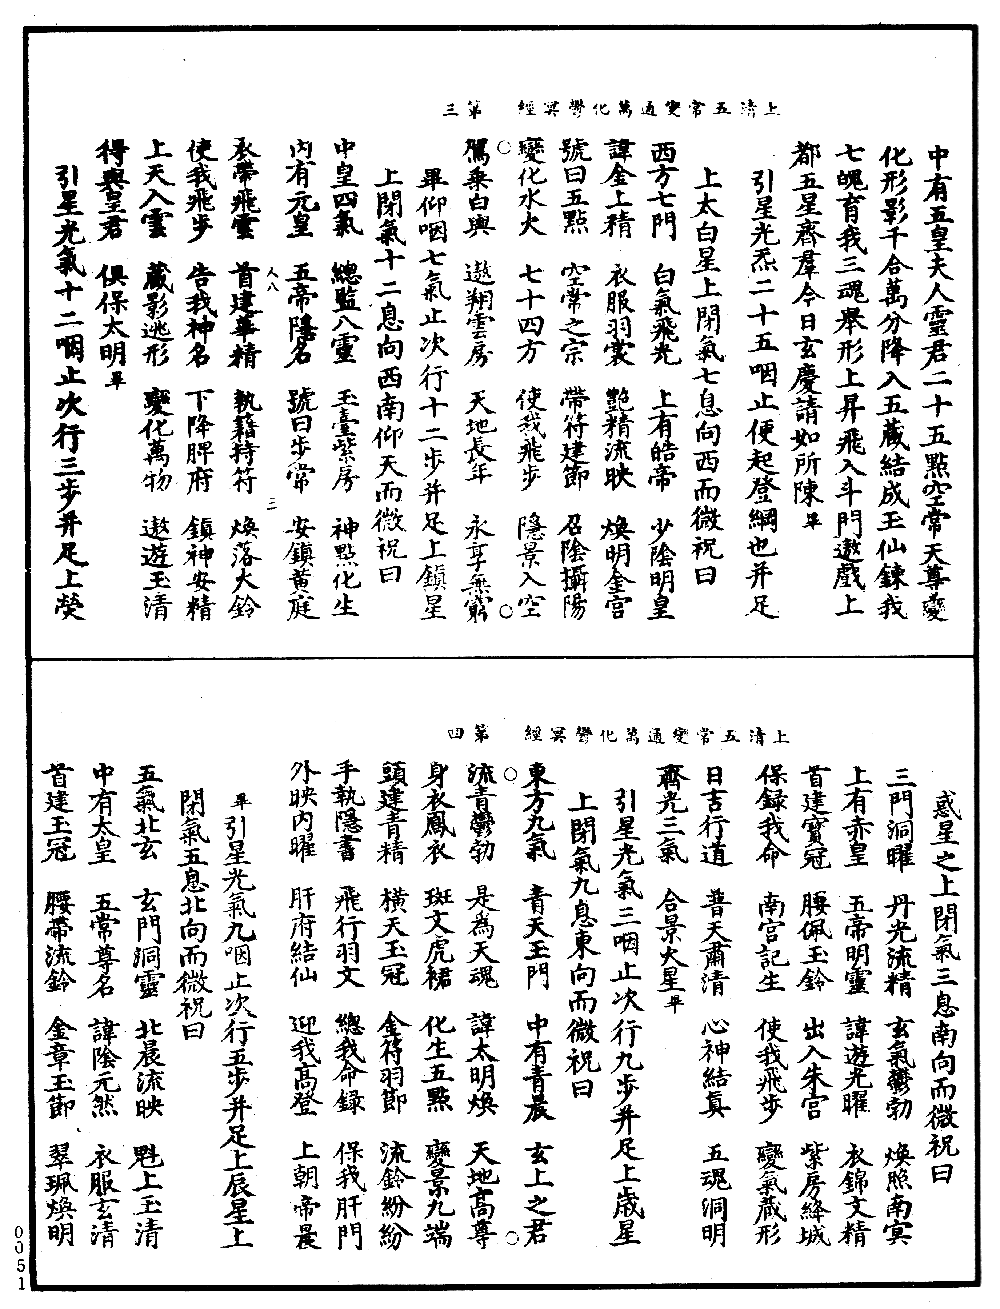 上清五常變通萬化鬱冥經　第三
中有五皇夫人靈君二十五點空常天尊變
化形影千合萬分降入五藏結成玉仙鍊我
七魄育我三魂舉形上昇飛入斗門遨戲上
都五星齊羣今日玄慶請如所陳畢
引星光炁二十五咽止便起登綱也并足
上太白星上閉氣七息向西而微祝曰
西方七門　白氣飛光　上有皓帝　少陰明皇
諱金上精　衣服羽裳　艶精流映　煥明金宮
號曰五點　空常之宗　帶符建節　召陰攝陽
變化水火　七十四方　使我飛步　隱景入空
騰乘白輿　遨翔雲房　天地長年　永享無窮
畢仰咽七氣止次行十二步并足上鎮星
上閉氣十二息向西南仰天而微祝曰
中皇四氣　總監八靈　玉臺紫房　神點化生
內有元皇　五帝隱名　號曰步常　安鎮黃庭
衣帶飛雲　首建華精　執籍持符　煥落大鈴
使我飛步　告我神名　下降脾府　鎮神安精
上天入雲　藏影逃形　變化萬物　遨遊玉清
得與皇君　俱保太明畢
引星光氣十二咽止次行三步并足上熒
上清五常變通萬化鬱冥經　第四
惑星之上閉氣三息南向而微祝曰
三門洞曜　丹光流精　玄氣鬱勃　煥照南冥
上有赤皇　五帝明靈　諱遊光曜　衣錦文精
首建寶冠　腰佩玉鈴　出入朱宮　紫房絳城
保錄我命　南宮記生　使我飛步　變氣藏形
日吉行道　普天肅清　心神結真　五魂洞明
齊光三氣　合景火星畢
引星光氣三咽止次行九步并足上歲星
上閉氣九息東向而微祝曰
東方九氣　青天玉門　中有青晨　玄上之君
流青鬱勃　是為天魂　諱太明煥　天地高尊
身衣鳳衣　斑文虎裙　化生五點　變景九端
頭建青精　橫天玉冠　金符羽節　流鈴紛紛
手執隱書　飛行羽文　總我命錄　保我肝門
外映內曜　肝府結仙　迎我高登　上朝帝晨
畢引星光氣九咽止次行五步并足上辰星上
閉氣五息北向而微祝曰
五氣北玄　玄門洞靈　北晨流映　魁上玉清
中有太皇　五常尊名　諱陰元然　衣服玄清
首建玉冠　腰帶流鈴　金章玉節　翠珮煥明
0051